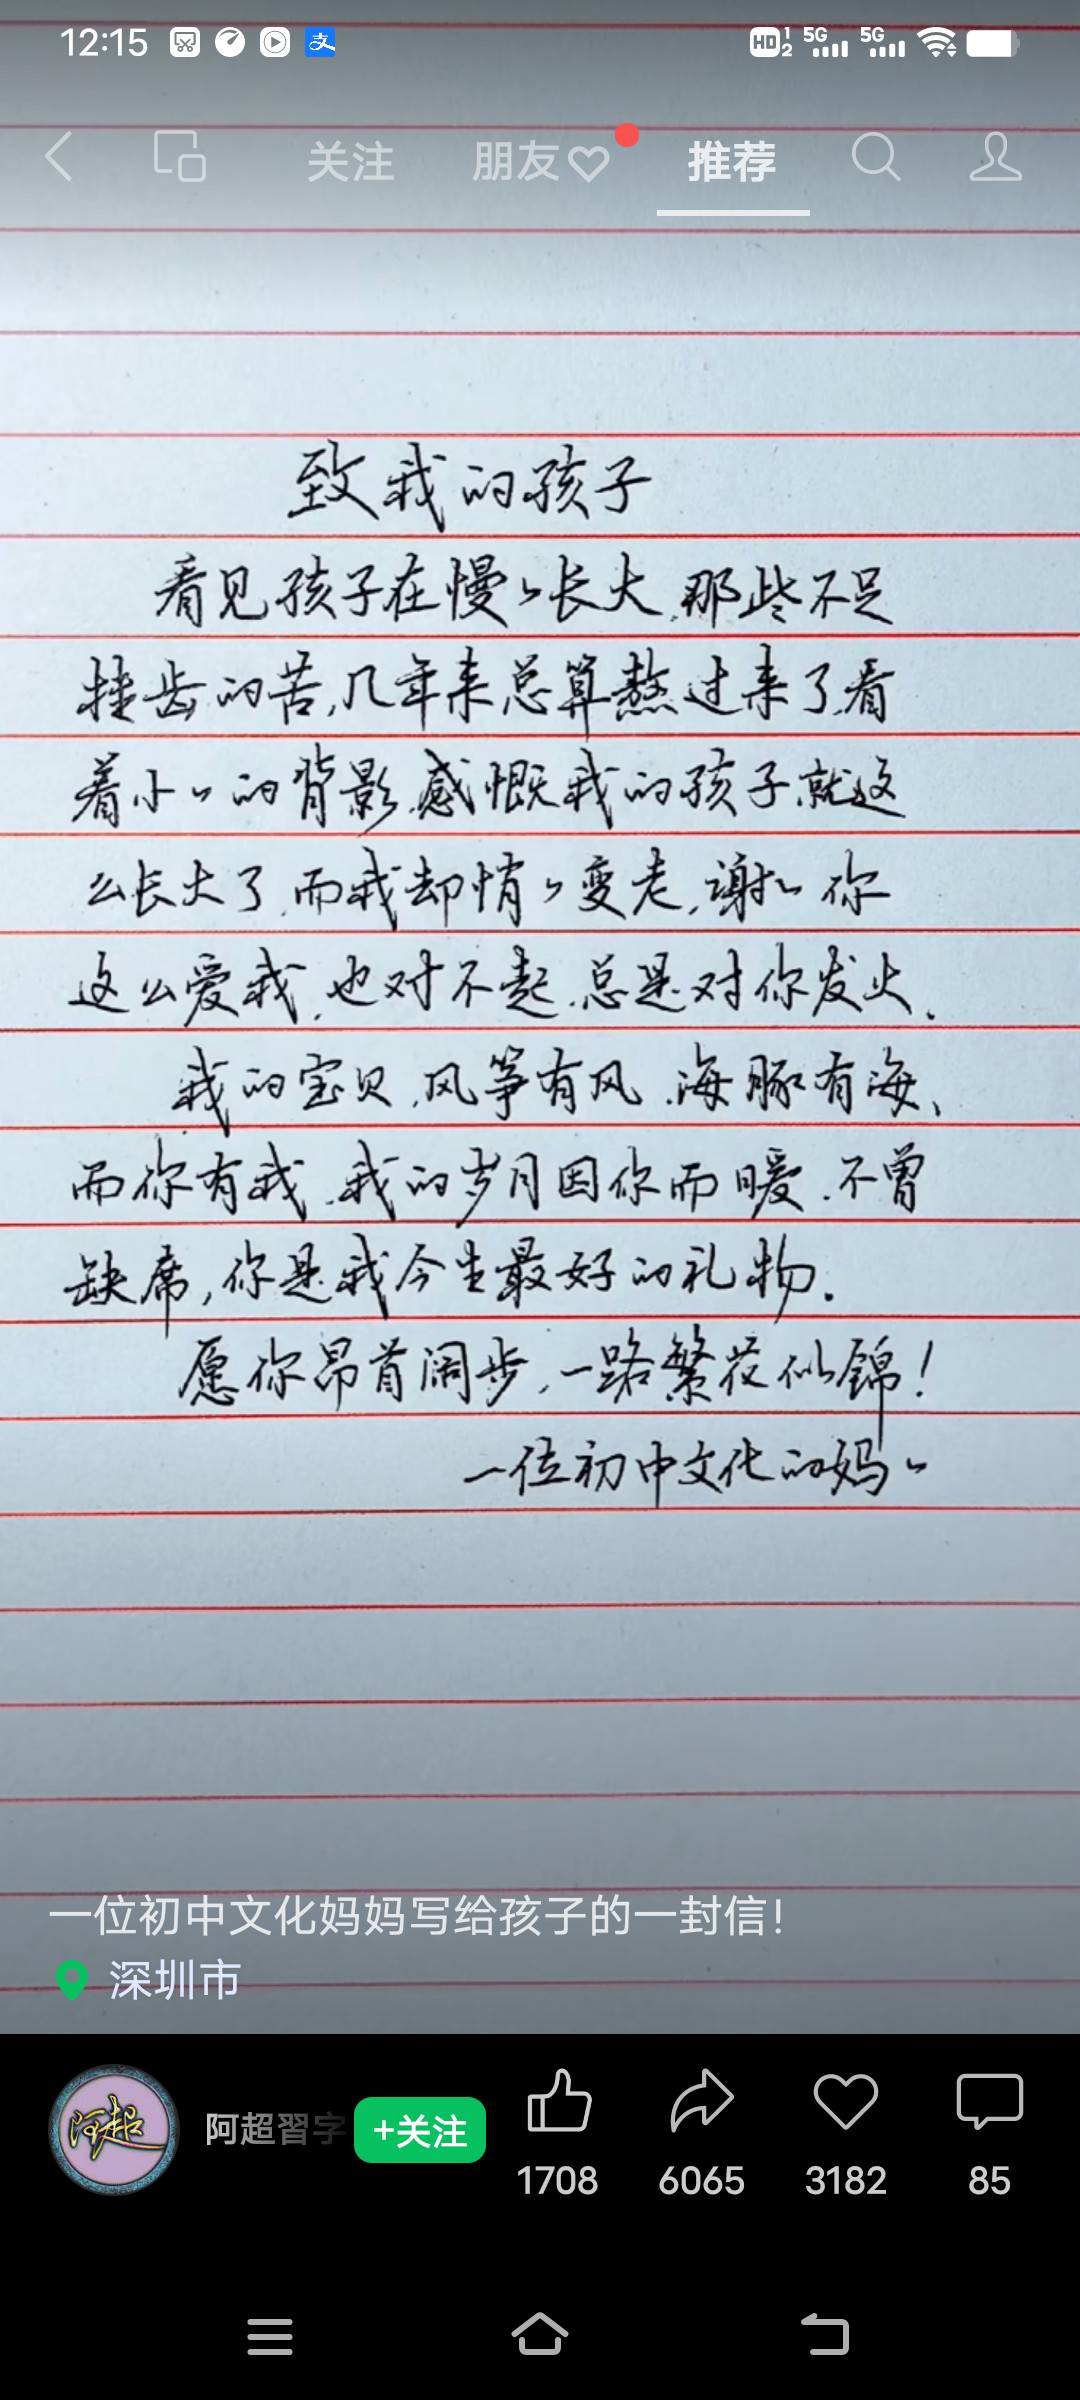 12:15
HD 1 2 5G 5G
关注 朋友 推荐
致我的孩子
看见孩子在慢慢长大,那些不足
挂齿的苦,几年来总算熬过来了,看
着小小的背影,感慨我的孩子,就这
么长大了,而我却悄悄变老,谢谢你
这么爱我,也对不起,总是对你发火.
我的宝贝,风筝有风,海豚有海、
而你有我,我的岁月因你而暖,不曾
缺席,你是我今生最好的礼物.
愿你昂首阔步,一路繁花似锦!
一位初中文化的妈妈
一位初中文化妈妈写给孩子的一封信!
深圳市
阿超
阿超習字 +关注
1708 6065 3182 85